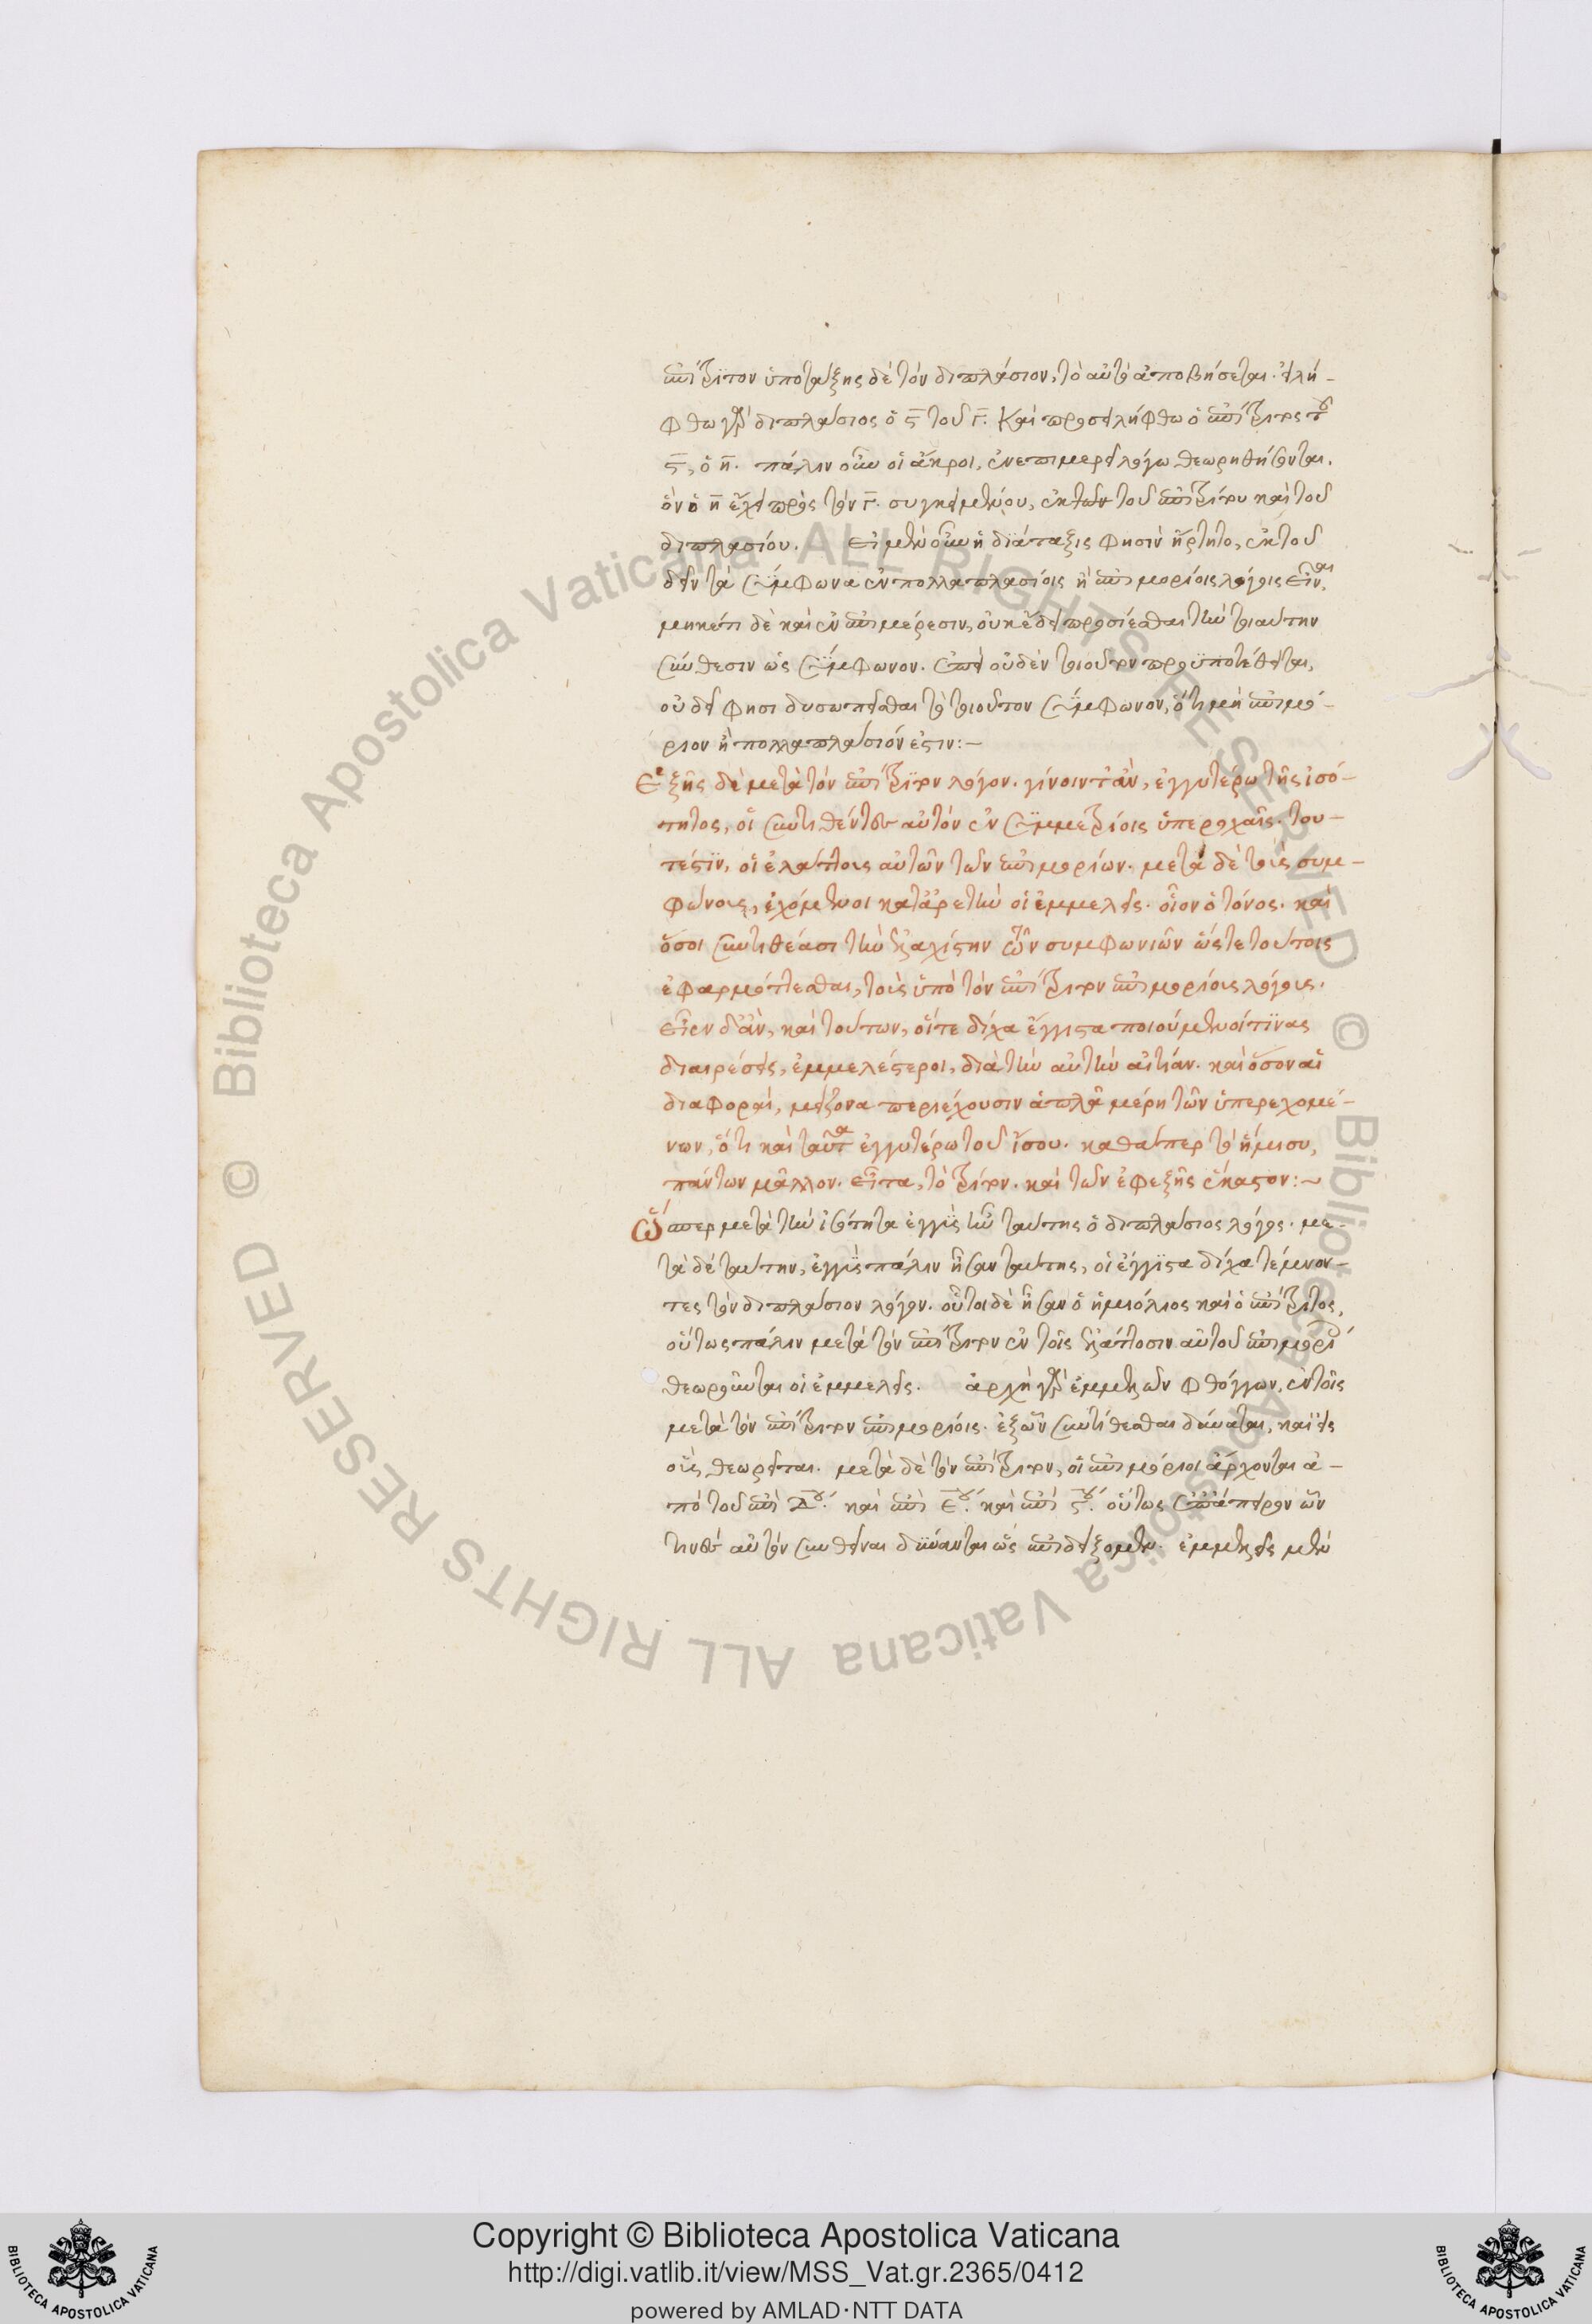 ἐπίτριτον ὑποτάξης δὲ τὸν διπλάσιον, τὸ αὐτὸ ἀποβήσεται. εἰλή-
φθω γὰρ διπλάσιος ὁ ς̅ τοῦ γ̅. καὶ προσειλήφθω ὁ ἐπίτριτος τοῦ
ς̅, ὁ η̅. πάλιν οὖν οἱ ἄκροι, ἐν ἐπιμερεῖ λόγω θεωρηθήσονται.
ὃν ὁ η̅ ἔχει πρὸς τὸν γ̅. συγκειμένου, ἐκ τῶν τοῦ ἐπιτρίτου καὶ τοῦ
διπλασίου. Εἰ μὲν οὖν ἡ διάταξις φησὶν ἤρτητο, ἐκ τοῦ
δεῖν τὰ σύμφωνα ἐν πολλαπλασίοις ἢ ἐπιμορίοις λόγοις εἶναι,
μηκέτι δὲ καὶ ἐν ἐπιμέρεσιν, οὐκ ἔδει προσίεσθαι τὴν τοιαύτην
σύνθεσιν ὡς σύμφωνον. ἐπεὶ οὐδὲν τοιοῦτον προϋποτέθειται,
οὐ δεῖ φησι δυσωπεῖσθαι τὸ τοιοῦτον σύμφωνον, ὅτι μὴ ἐπιμό-
ριον ἢ πολλαπλάσιόν ἐστιν:-
Ἑξῆς δὲ μετὰ τὸν ἐπίτριτον λόγον. γίνοιντ' ἂν, ἐγγυτέρω τῆς ἰσό-
τητος, οἱ συντιθέντες αὐτὸν ἐν συμμετρίοις ὑπεροχαῖς. του-
τέστιν, οἱ ἐλάττους αὐτῶν τῶν ἐπιμορίων. μετὰ δὲ τοὺς συμ-
φώνους, ἐχόμενοι κατ' ἀρετὴν οἱ ἐμμελεῖς. οἷον ὁ τόνος. καὶ
ὅσοι συντιθέασι τὴν ἐλαχίστην τῶν συμφωνιῶν ὥστε τούτοις
ἐφαρμόττεσθαι, τοὺς ὑπὸ τὸν ἐπίτριτον ἐπιμορίους λόγους.
εἶεν δ' ἂν, καὶ τούτων, οἵτε δίχα ἔγγιστα ποιούμενοί τινας
διαιρέσεις, ἐμμελέστεροι, διὰ τὴν αὐτὴν αἰτίαν. καὶ ὅσον αἱ
διαφοραί, μείζονα περιέχουσιν ἁπλᾶ μέρη τῶν ὑπερεχομέ-
νων, ὅτι καὶ ταῦτα ἐγγυτέρω τοῦ ἴσου. καθάπερ τὸ ἥμισυ,
πάντων μᾶλλον. εἶτα, τὸ τρίτον. καὶ τῶν ἐφεξῆς ἕκαστον:~
Ὥσπερ μετὰ τὴν ἰσότητα ἐγγὺς ἦν ταύτης ὁ διπλάσιος λόγος. με-
τὰ δὲ ταύτην, ἐγγὺς πάλιν ἦσαν ταύτης, οἱ ἔγγιστα δίχα τέμνον-
τες τὸν διπλάσιον λόγον. οὗτοι δὲ ἦσαν ὁ ἡμιόλιος καὶ ὁ ἐπίτριτος,
οὕτως πάλιν μετὰ τὸν ἐπίτριτον ἐν τοῖς ἐλάττοσιν αὐτοῦ ἐπιμορίοις
θεωροῦνται οἱ ἐμμελεῖς. ἀρχὴ γὰρ ἐμμελῶν φθόγγων, ἐν τοῖς
μετὰ τὸν ἐπίτριτον ἐπιμορίοις. ἐξ ὧν συντίθεσθαι δύναται, καὶ εἰς
οὓς θεωρεῖται. μετὰ δὲ τὸν ἐπίτριτον, οἱ ἐπιμόριοι ἄρχονται ἀ-
πὸ τοῦ ἐπὶ δ̅ου. καὶ ἐπὶ ε̅ου. καὶ ἐπὶ ς̅ου. οὕτως ἐπάπειρον ὧν
τινες αὐτὸν συνθεῖναι δύνανται ὡς ἐπιδείξομεν. ἐμμελεῖς μὲν